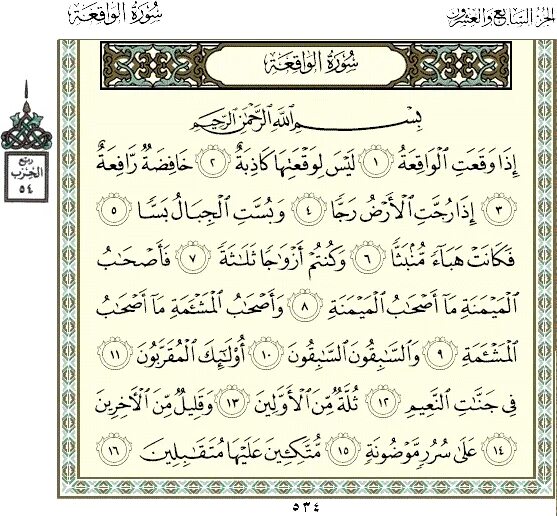 سُورَةُ الوَاقِعَة
الجزء السَّابِع والعِشرُون
سُورَةُ الوَاقِعَةِ
ربع
الحزب
٥٤
بِسْمِ ٱللَّهِ ٱلرَّحْمَٰنِ ٱلرَّحِيمِ
إِذَا وَقَعَتِ ٱلْوَاقِعَةُ ١ لَيْسَ لِوَقْعَتِهَا كَاذِبَةٌ ٢ خَافِضَةٌ رَّافِعَةٌ
٣ إِذَا رُجَّتِ ٱلْأَرْضُ رَجًّا ٤ وَبُسَّتِ ٱلْجِبَالُ بَسًّا ٥
فَكَانَتْ هَبَآءً مُّنۢبَثًّا ٦ وَكُنتُمْ أَزْوَٰجًا ثَلَٰثَةً ٧ فَأَصْحَٰبُ
ٱلْمَيْمَنَةِ مَآ أَصْحَٰبُ ٱلْمَيْمَنَةِ ٨ وَأَصْحَٰبُ ٱلْمَشْـَٔمَةِ مَآ أَصْحَٰبُ
ٱلْمَشْـَٔمَةِ ٩ وَٱلسَّٰبِقُونَ ٱلسَّٰبِقُونَ ١٠ أُو۟لَٰٓئِكَ ٱلْمُقَرَّبُونَ ١١
فِى جَنَّٰتِ ٱلنَّعِيمِ ١٢ ثُلَّةٌ مِّنَ ٱلْأَوَّلِينَ ١٣ وَقَلِيلٌ مِّنَ ٱلْـَٔاخِرِينَ
١٤ عَلَىٰ سُرُرٍ مَّوْضُونَةٍ ١٥ مُّتَّكِـِٔينَ عَلَيْهَا مُتَقَٰبِلِينَ ١٦
٥٣٤